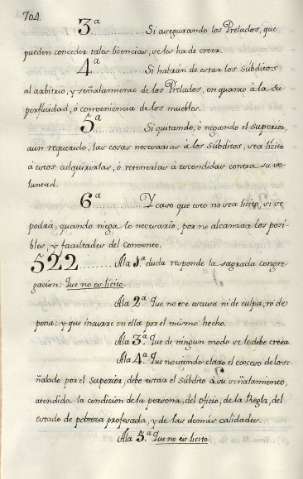 704.
3ª ........ Si asegurando los Prelados, que
pueden conceder tales licencias, se les ha de creer.
4ª ........ Si habrán de estar los Súbditos
al arbitrio, y señalamiento de los Prelados, en quanto à la su
perfluidad, o conveniencia de los muebles.
5ª ........ Si quitando, ò negando el superior,
aun requerido, las cosas necesarias à los Súbditos, sea licito
à estos adquirirlas, ò retenerlas à escondidas contra su vo
luntad.
6ª ........ Y caso que esto no sea licito, si se
podrá, quando niega lo necesario, por no alcanzar los posi
bles, y facultades del Convento.
522 ........ A la 1ª duda responde la sagrada congre
gacion: Que no es licito.
A la 2ª Que no se escusa ni de culpa, ni de
pena: y que incurre en ella por el mismo hecho.
A la 3ª Que de ningun modo se le debe creer.
A la 4ª Que no siendo claro el exceso de lo se
ñalado por el Superior, debe estar el Súbdito à su señalamiento,
atendida la condicion de la persona, del oficio, de la Regla, del
estado de pobreza profesada, y de las demás calidades.
A la 5ª Que no es licito.